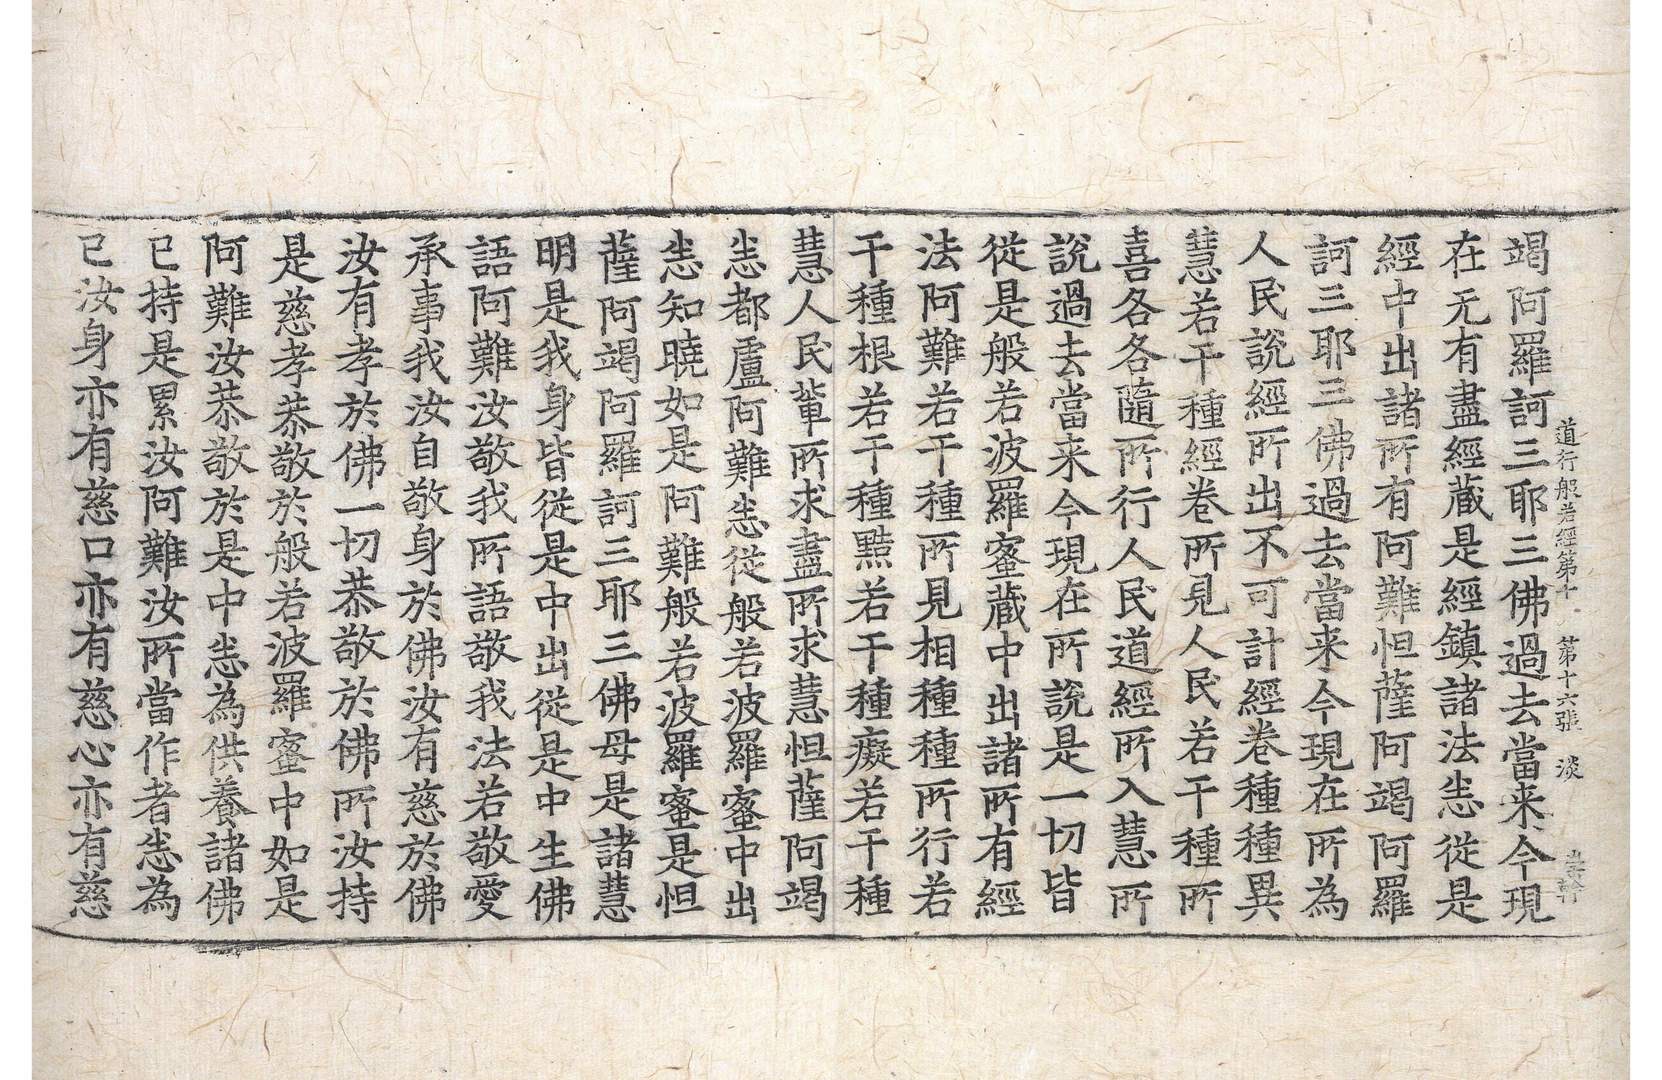 道行般若經第十 第十六張 淡
竭阿羅訶三耶三佛過去當来今現
在无有盡經蔵是經鎮諸法悉從是
經中出諸所有阿難怛薩阿竭阿羅
訶三耶三佛過去當来今現在所為
人民說經所出不可計經卷種種異
慧若干種經卷所見人民若干種所
喜各各隨所行人民道經所入慧所
說過去當来今現在所說是一切皆
從是般若波羅蜜蔵中出諸所有經
法阿難若干種所見相種種所行若
干種根若干種黠若干種癡若干種
慧人民輩所求盡所求慧怛薩阿竭
悉都盧阿難悉從般若波羅蜜中出
悉知曉如是阿難般若波羅蜜是怛
薩阿竭阿羅訶三耶三佛母是諸慧
明是我身皆從是中出從是中生佛
語阿難汝敬我所語敬我法若敬愛
承事我汝自敬身於佛汝有慈於佛
汝有孝於佛一切恭敬於佛所汝持
是慈孝恭敬於般若波羅蜜中如是
阿難汝恭敬於是中悉為供養諸佛
已持是累汝阿難汝所當作者悉為
已汝身亦有慈口亦有慈心亦有慈